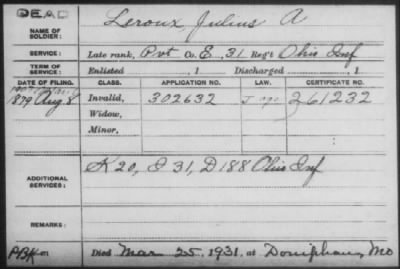 DEAD
NAME OF SOLDIER: Leroux, Julius A
SERVICE: Late rank, Pvt Co. E, 31 Reg't Ohio Inf
TERM OF SERVICE: Enlisted , 1 Discharged , 1
DATE OF FILING. CLASS. APPLICATION NO. LAW. CERTIFICATE NO.
1879 Aug 8 Invalid, 302632 261232
Widow,
Minor,
ADDITIONAL SERVICES: K 20, I 31, D 188 Ohio Inf
REMARKS:
Died Mar 25, 1931, at Doniphan, Mo